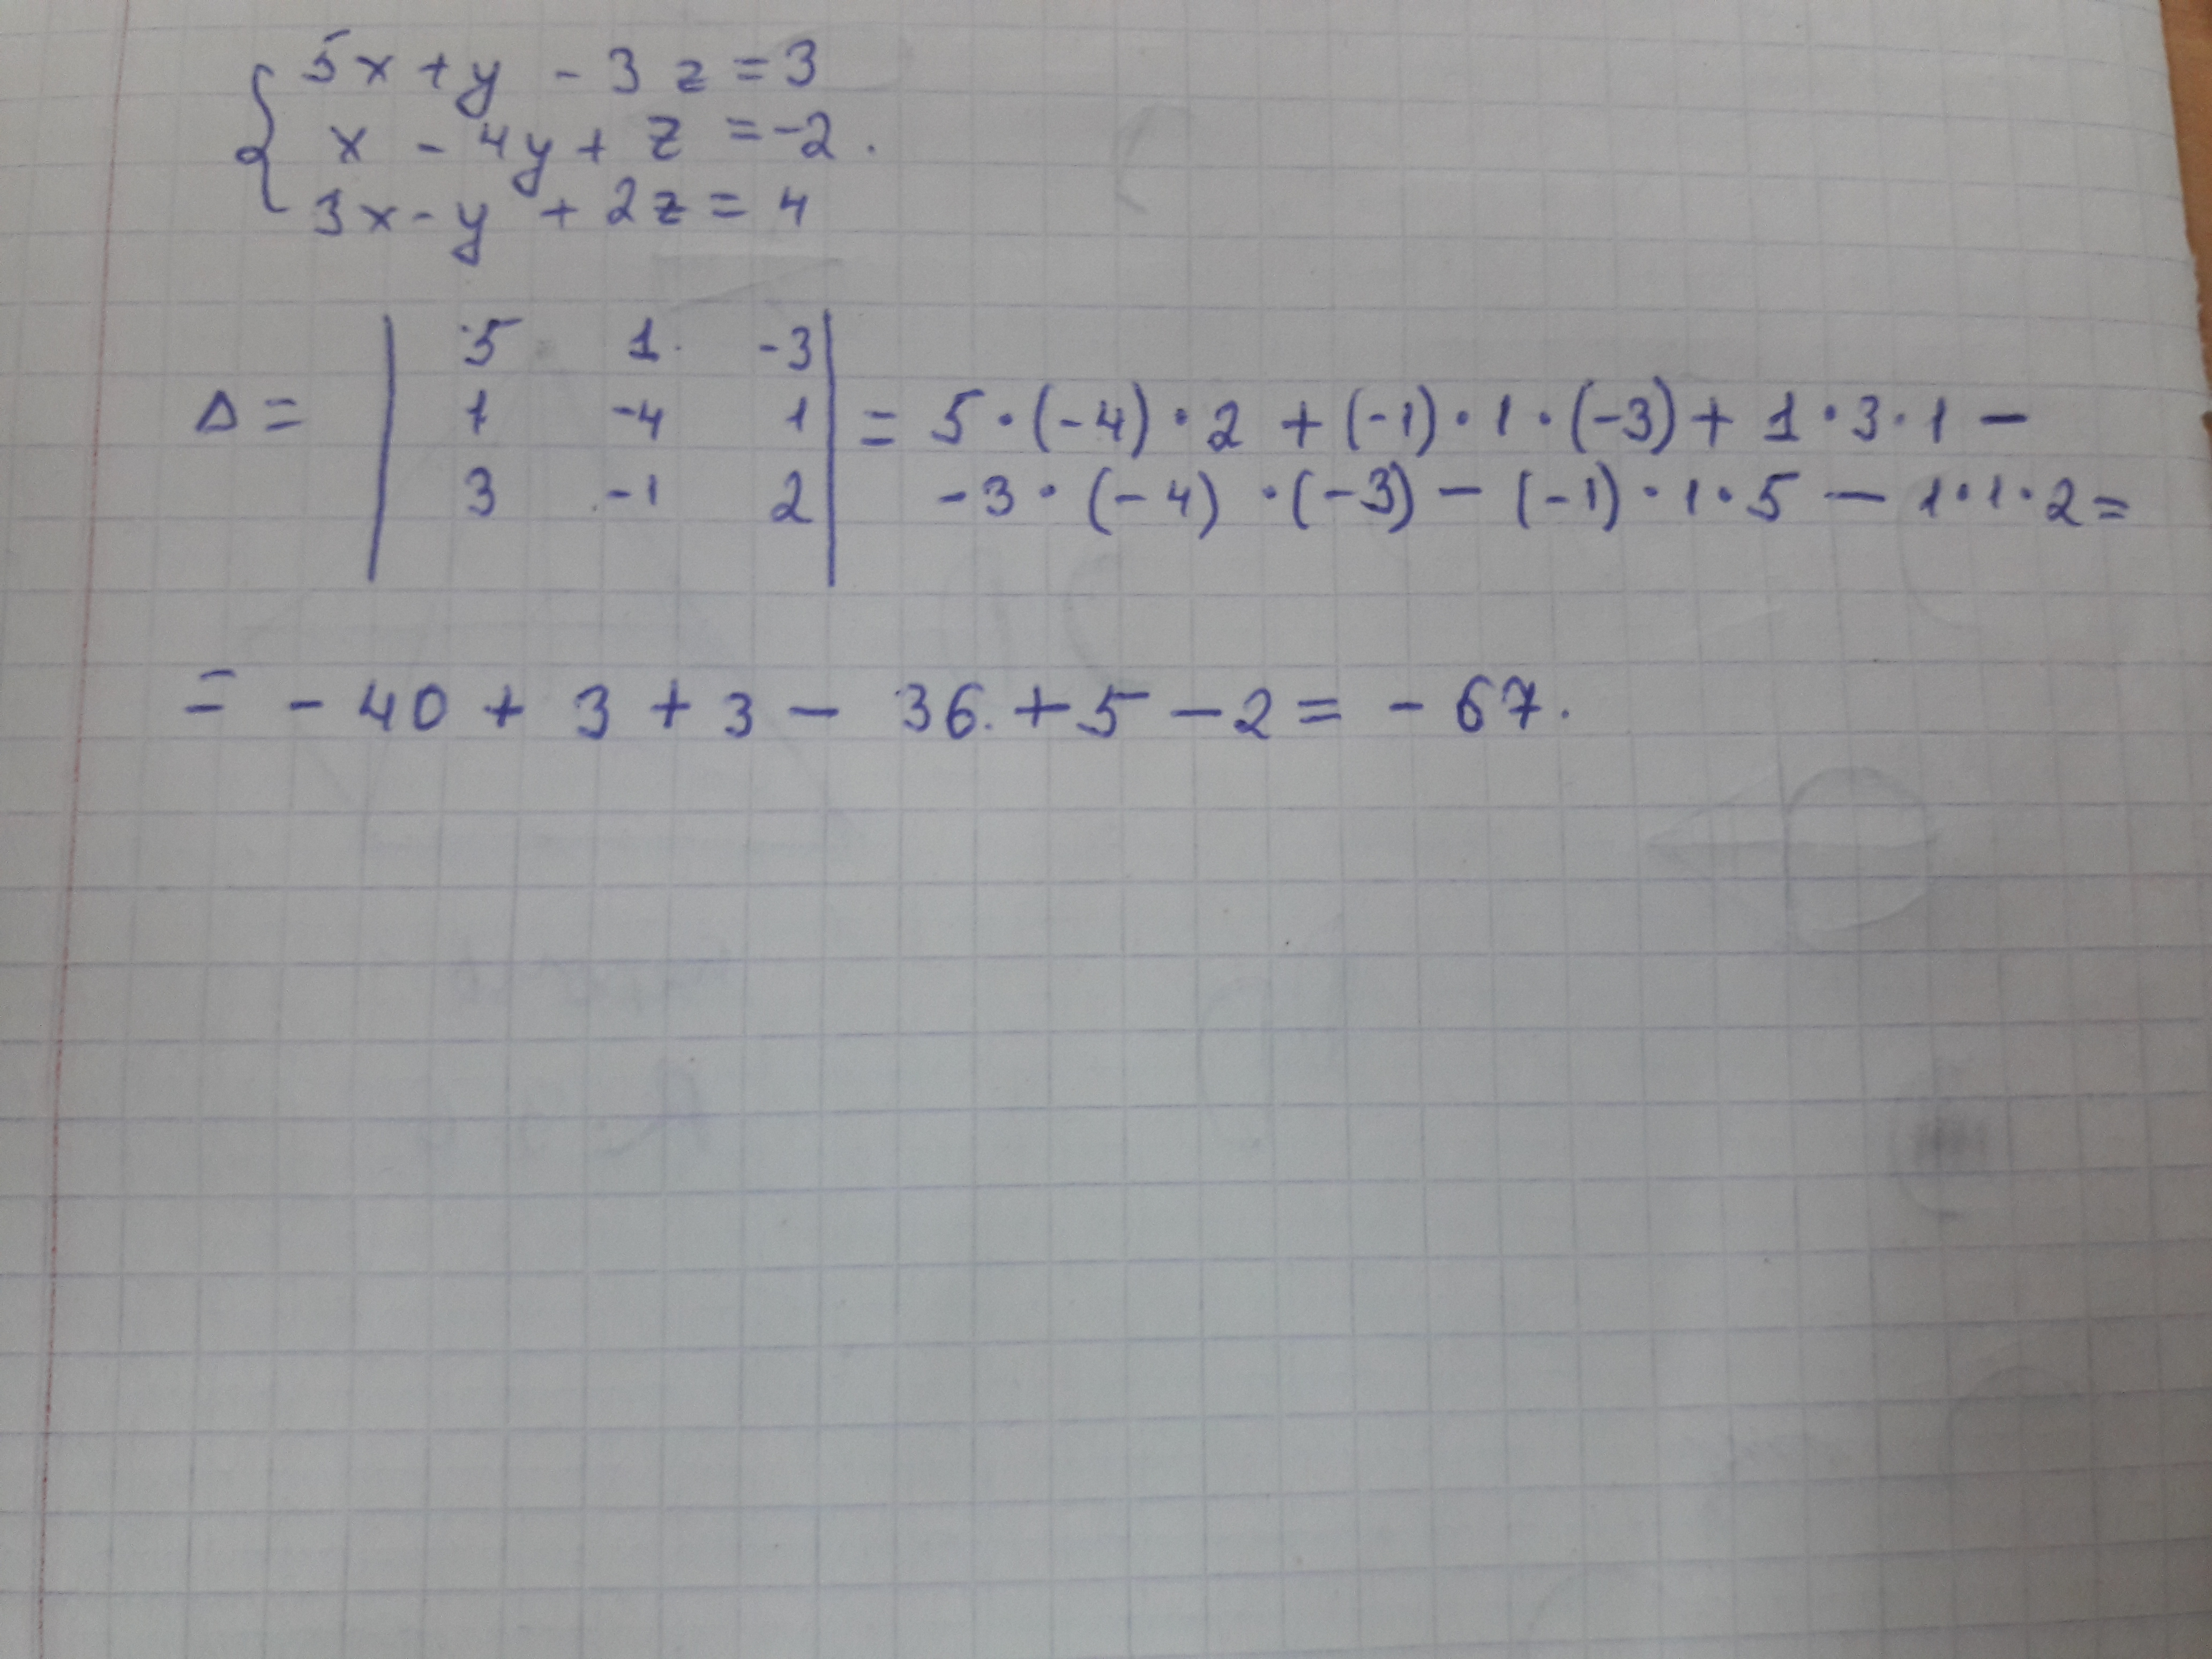 5x + y - 3z = 3
x - 4y + z = -2.
3x - y + 2z = 4
5 1 -3
Δ = 1 -4 1 = 5·(-4)·2 + (-1)·1·(-3) + 1·3·1 -
3 -1 2 -3·(-4)·(-3) - (-1)·1·5 - 1·1·2 =
= -40 + 3 + 3 - 36 + 5 - 2 = -67.